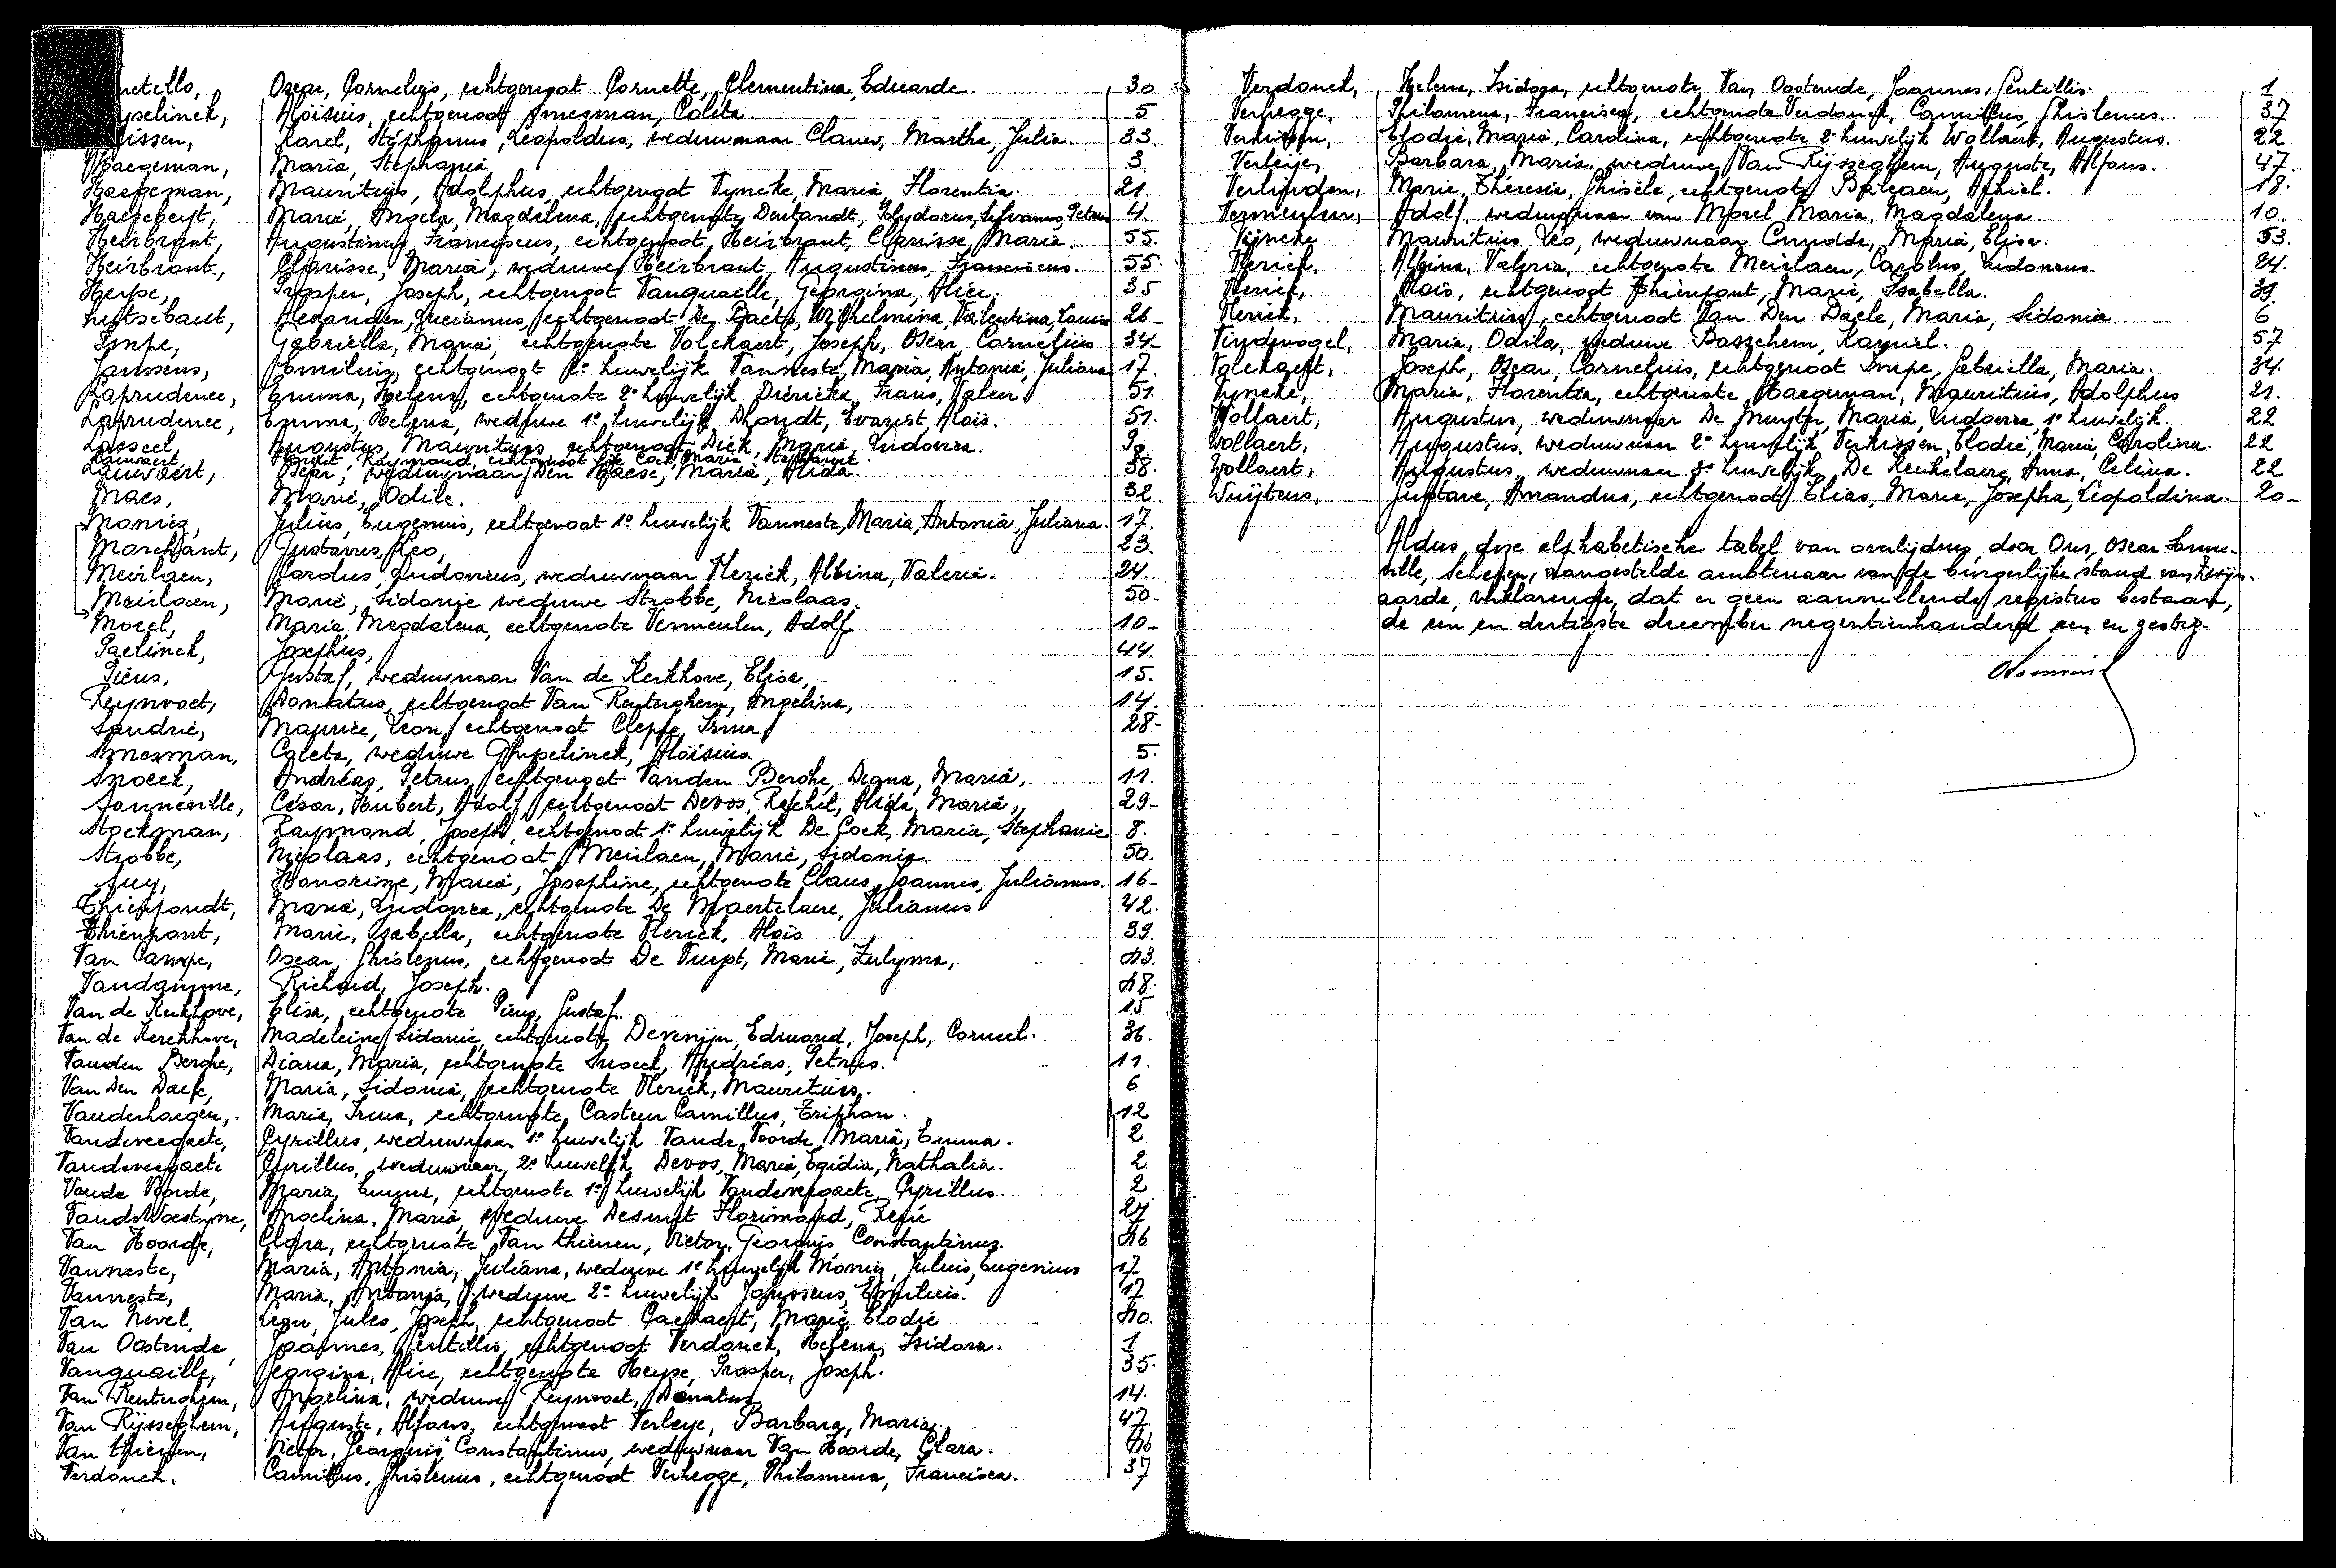 netello, Oscar, Cornelijs, echtgenoot Cornette, Clementina, Eduarde. 30
ypelinck, Aloïsius, echtgenoot Smesman, Coleta. 5
issen, Karel, Stéphanus, Leopoldus, weduwnaar Clauw, Marthe, Julia. 33.
Haegeman, Maria, Stephania 3.
Haegeman, Mauritius, Adolphus, echtgenoot Tyncke, Maria, Florentia. 21.
Haegebeyt, Maria, Angela, Magdalena, echtgenote Deutandt, Polydorus, Sylvanus, Petrus 4
Heirbrant, Augustinus, Franciscus, echtgenoot, Heirbrant, Clarisse, Maria. 55.
Heirbrant, Clarisse, Maria, weduwe Heirbrant, Augustinus, Franciscus. 55.
Herpe, Prosper, Joseph, echtgenoot Vanquaille, Georgina, Alice. 35
Hutsebaut, Alexander, Lucianus, echtgenoot De Baets, Wilhelmina, Valentina, Louise 26-
Impe, Gabriella, Maria, echtgenote Volckaert, Joseph, Oscar, Cornelius 34-
Janssens, Emilius, echtgenoot 2e huwelijk Vanneste, Maria, Antonia, Juliana 17.
Laprudence, Emma, Helena, echtgenote 2e huwelijk Diericks, Frans, Valeer. 51.
Laprudence, Emma, Helena, weduwe 1e huwelijk Dhondt, Evarist, Aloïs. 51.
Lasseel, Augustus, Mauritius, echtgenoot Dick, Maria, Ludovica. 9.
Lauwaert, Raymond, echtgenoot De Cock Maria, Stephanie. 8
Lauwaert, Oscar, weduwnaar Den Haese, Maria, Alida. 38.
Maes, Marie, Odile. 32
Moniez, Julius, Eugenius, echtgenoot 1e huwelijk Vanneste, Maria, Antonia, Juliana. 17.
Marchant, Gustavus, Leo, 23.
Meirlaen, Carolus, Ludovicus, weduwnaar Vlerick, Albina, Valerie. 24.
Meirlaen, Marie, Sidonie weduwe Strobbe, Nicolaas. 50-
Morel, Maria, Magdalena, echtgenote Vermeulen, Adolf 10-
Paelinck, Josephus, 44.
Piens, Gustaf, weduwnaar Van de Kerkhove, Elisa, 15.
Reynvoet, Donatus, echtgenoot Van Renterghem, Angelina, 14.
Saudrie, Maurice, Léon, echtgenoot Cleppe, Irma 28-
Smesman, Coleta, weduwe Ghypelinck, Aloïsius. 5.
Snoeck, Andréas, Petrus, echtgenoot Vanden Berghe, Diana, Maria, 11.
Sonneville, César, Hubert, Adolf, echtgenoot Devos, Rachil, Alida, Maria, 29-
Stockman, Raymond, Joseph, echtgenoot 1e huwelijk De Cock, Maria, Stephanie 8.
Strobbe, Nicolaas, echtgenoot Meirlaen, Marie, Sidonie. 50.
Suy, Honorine, Maria, Josephine, echtgenote Claus, Joannes, Julianus. 16-
Thienpondt, Maria, Ludovica, echtgenote De Maertelaere, Julianus 42.
Thienpont, Marie, Isabella, echtgenote Vlerick, Aloïs 39.
Van Campe, Oscar, Ghislenus, echtgenoot De Vuyst, Marie, Zulyma, 43.
Vandamme, Richard, Joseph. 48.
Van de Kerkhove, Elisa, echtgenote Piens, Gustaf. 15
Van de Kerckhove, Madeleine, Sidonie, echtgenote, Devenijn, Edmond, Joseph, Corneel. 36.
Vanden Berghe, Diana, Maria, echtgenote Snoeck, Andréas, Petrus. 11.
Van Den Daele, Maria, Sidonia, echtgenote Vlerick, Mauritius. 6
Vanderhaegen, Maria, Irma, echtgenote, Casteur Camillus, Triphon. 12
Vandeveegaete, Cyrillus, weduwnaar 1e huwelijk Vande Voorde, Maria, Emma. 2
Vandeveegaete Cyrillus, weduwnaar, 2e huwelijk Devos, Maria, Egidia, Nathalia. 2
Vande Voorde, Maria, Emma, echtgenote 1e huwelijk Vandeveegaete, Cyrillus. 2
VandeWoestyne, Angelina, Maria, weduwe Desmet Florimond, René 27
Van Hoorde, Clara, echtgenote Van thienen, Victor, Georgius, Constantinus. 46
Vanneste, Maria, Antonia, Juliana, weduwe 1e huwelijk Moniez, Julius, Eugenius 17-
Vanneste, Maria, Antonia, J. weduwe 2e huwelijk Janssens, Emilius. 17
Van Nevel, Leon, Jules, Joseph, echtgenoot Gaelhaert, Marie, Elodie 40.
Van Oostende, Joannes, Gentillis, echtgenoot Verdonck, Helena, Isidora. 1
Vanquaille, Georgina, Alice, echtgenote Herpe, Prosper, Joseph. 35.
Van Renterghem, Angelina, weduwe Reynvoet, Donatus 14.
Van Rijsseghem, Auguste, Alfons, echtgenoot Verleye, Barbara, Maria. 47.
Van thienen, Victor, Georgius, Constantinus, weduwnaar Van Hoorde, Clara. 46
Verdonck. Camillus, Ghislenus, echtgenoot Verhegge, Philomena, Francisca. 37
Verdonck, Helena, Isidora, echtgenote Van Oostende, Joannes, Gentillis. 1
Verhegge, Philomena, Francisca, echtgenote Verdonck, Camillus, Ghislenus. 37
Verkissen, Elodie, Maria, Carolina, echtgenote 2e huwelijk Wollaert, Augustus. 22
Verleije, Barbara, Maria, weduwe Van Rijsseghem, Auguste, Alfons. 47.
Verlinden, Marie, Thérésia, Ghisèle, echtgenote Baileaen, Achiel. 18.
Vermeulen, Adolf, weduwnaar van Morel Maria, Magdalena. 10.
Vijncke Mauritius Leo, weduwnaar Cnudde, Maria, Elisa. 53.
Vlerick, Albina, Valeria, echtgenote Meirlaen, Carolus, Ludovicus. 24.
Vlerick, Aloïs, echtgenoot Thienpont, Marie, Isabella. 39
Vlerick, Mauritius, echtgenoot Van Den Daele, Maria, Sidonia. 6
Vindevogel, Maria, Odila, weduwe Baszehem, Kamiel. 57
Volckaert, Joseph, Oscar, Cornelius, echtgenoot Impe, Gabriella, Maria. 34.
Vyncke, Maria, Florentia, echtgenote, Haegeman, Mauritius, Adolphus 21.
Wollaert, Augustus, weduwnaar De Muyter, Maria, Ludovica, 1e huwelijk. 22
Wollaert, Augustus, weduwnaar 2e huwelijk Verkissen, Elodie, Maria, Carolina. 22
Wollaert, Augustus, weduwnaar 3e huwelijk De Keukelaere, Anna, Celina. 22
Wuijtens, Gustave, Amandus, echtgenoot Elias, Marie, Josepha, Leopoldina. 20-
Aldus deze alphabetische tabel van overlijdens door Ons, Oscar Sonne-
ville, Schepen, aangestelde ambtenaar van de burgerlijke stand van Zevijn.
aarde, verklarende, dat er geen aanvullende registers bestaan,
de een en dertigste december negentienhonderd een en zestig.